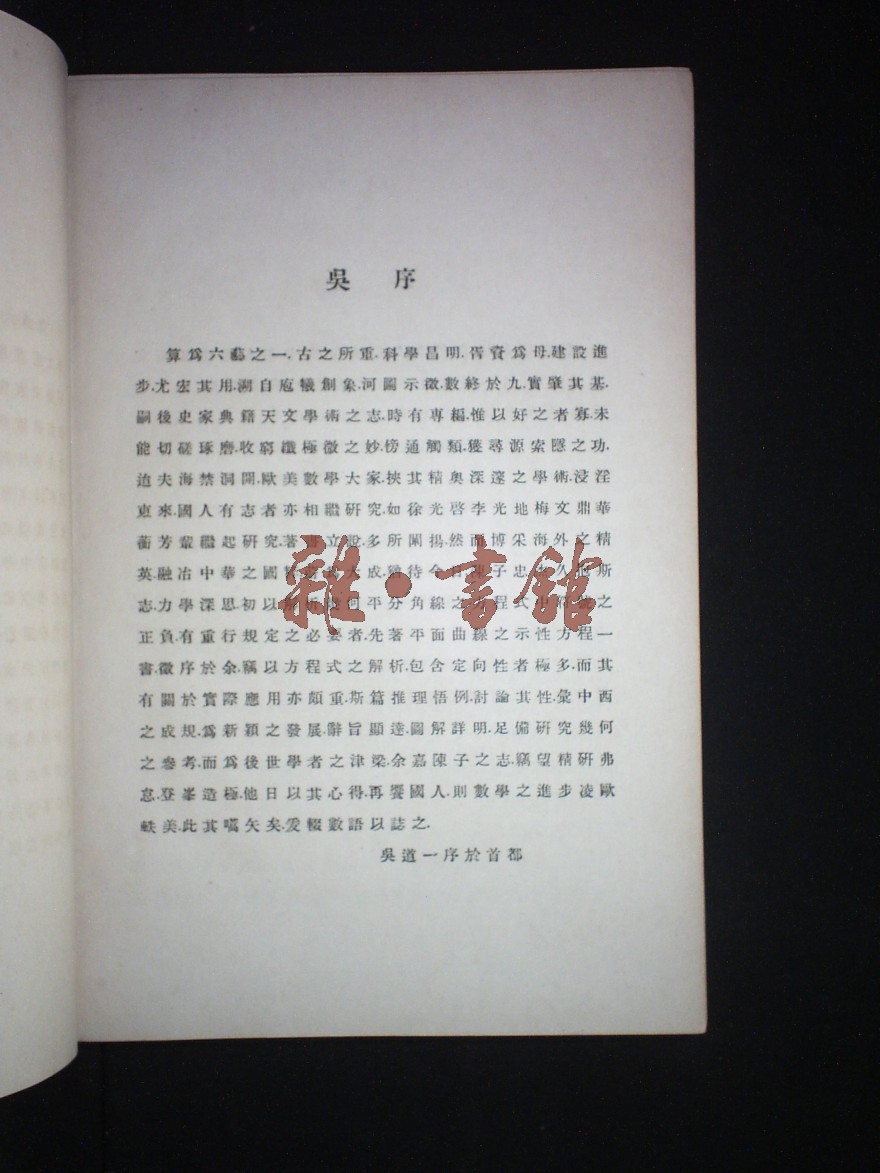 吳 序
算爲六藝之一.古之所重.科學昌明.胥資爲母.建設進
步.尤宏其用.溯自庖犧創象.河圖示徵.數終於九.實肇其基.
嗣後史家典籍天文學術之志.時有專編.惟以好之者寡.未
能切磋琢磨.收窮纖極微之妙.傍通觸類.獲尋源索隱之功.
迨夫海禁洞開.歐美數學大家.挾其精奧深邃之學術.浸淫
東來.國人有志者亦相繼研究.如徐光啓李光地梅文鼎華
蘅芳輩繼起研究.著書立說.多所闡揚.然而博采海外之精
英.融冶中華之國
大成.猶待今日.陳子忠
斯
志.力學深思.初以解析幾何平分角線之方程式中符號之
正負.有重行規定之必要者.先著平面曲線之示性方程一
書.徵序於余.竊以方程式之解析.包含定向性者極多.而其
有關於實際應用亦頗重.斯篇推理悟例.討論其性.彙中西
之成規.爲新穎之發展.辭旨顯達.圖解詳明.足備研究幾何
之參考.而爲後世學者之津梁.余嘉陳子之志.竊望精研弗
怠.登峯造極.他日以其心得.再饗國人.則數學之進步凌歐
軼美.此其嚆矢矣.爰輟數語以誌之.
吳道一序於首都
雜·書館